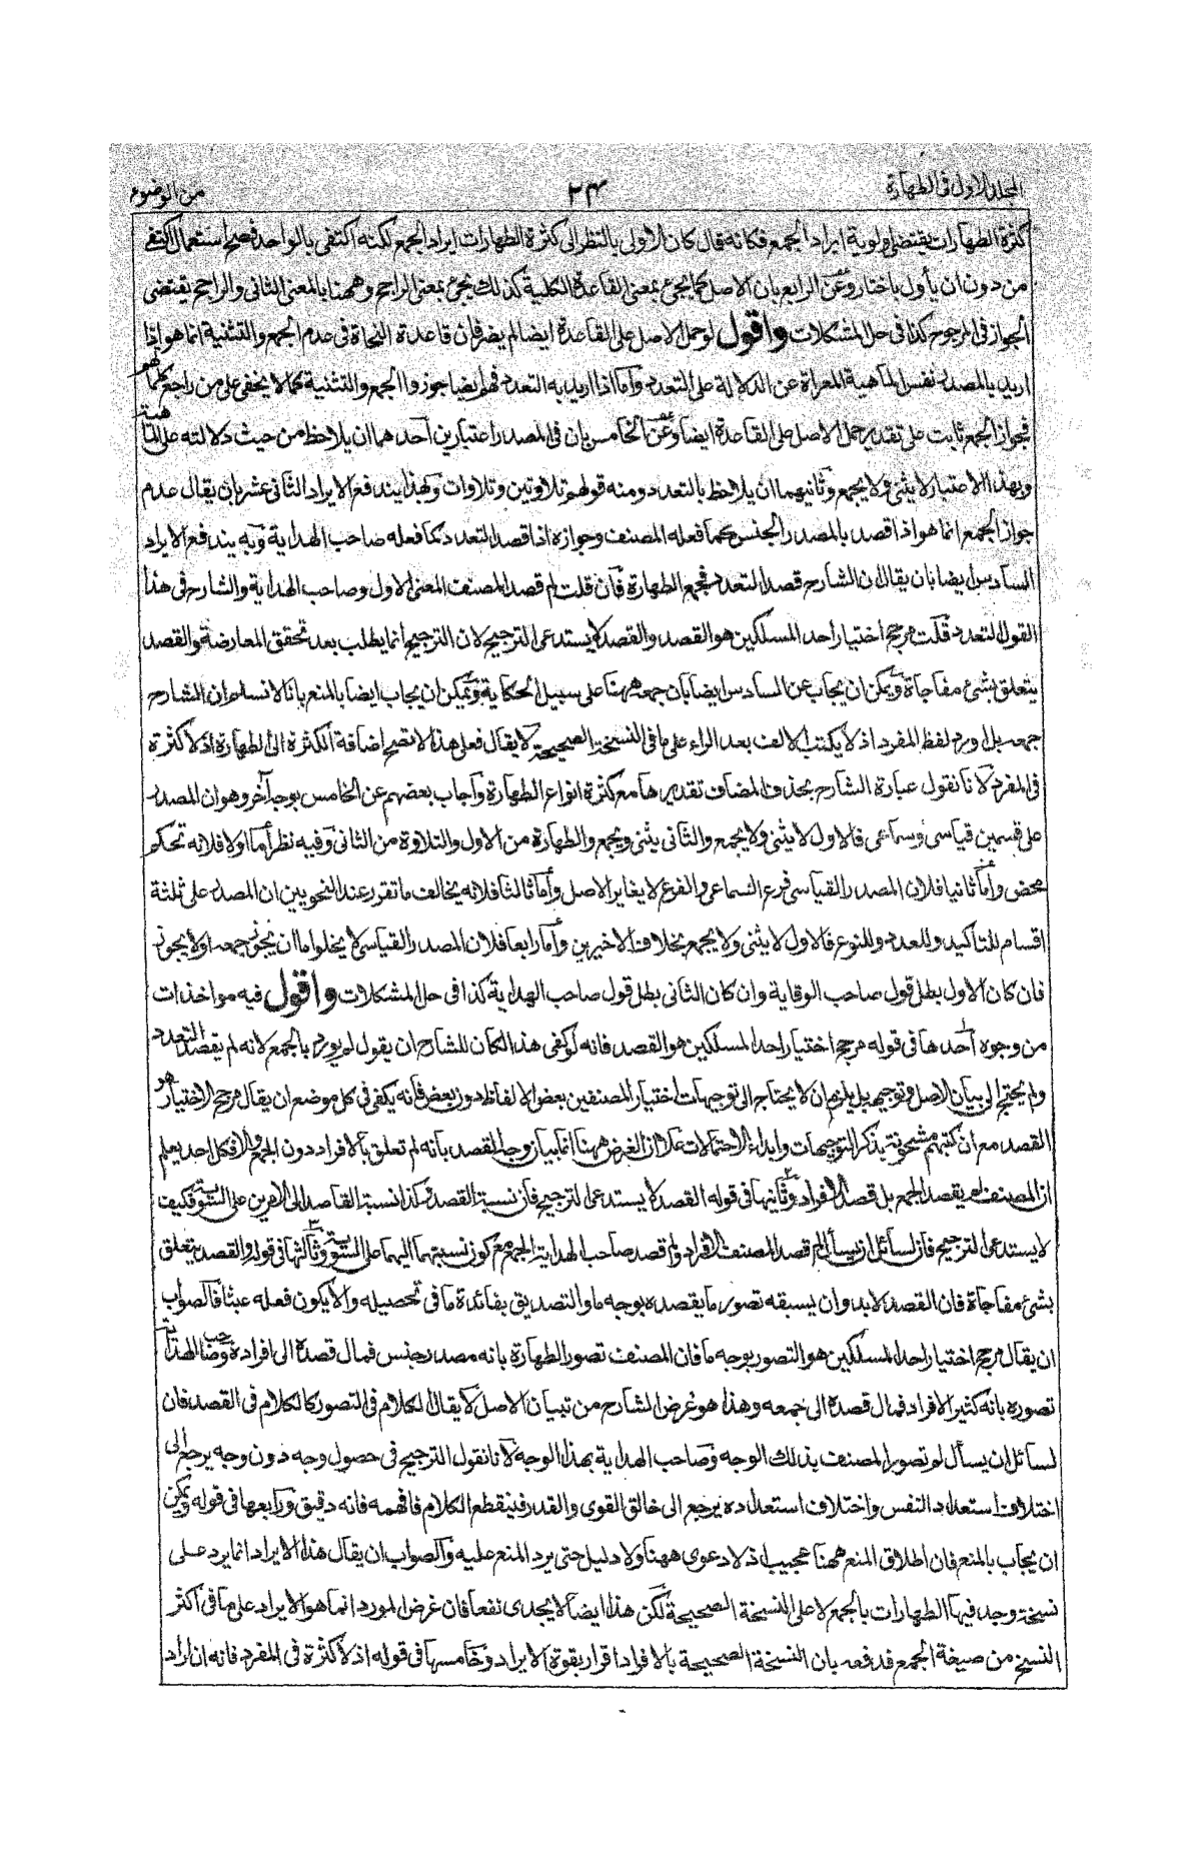 المجلد الاول فى الطهارة
٢٣
من الوضوء
كثرة الطهارات يقتضى اولوية ايراد الجمع فكانه قال كان الاولى بالنظر الى كثرة الطهارات ايراد الجمع لكنه اكتفى بالواحد فصح استعمال اكتفى
من دون ان يأول باختار وعن الرابع بان الاصل كما يجئ بمعنى القاعدة الكلية كذلك يجئ بمعنى الراجح وههنا بالمعنى الثانى والراجح يقتضى
الجواز فى المرجوح كذا فى حل المشكلات واقول لو حمل الاصل على القاعدة ايضا لم يضر فان قاعدة النحاة فى عدم الجمع والتثنية انما هو اذا
اريد بالمصدر نفس الماهية المعراة عن الدلالة على التعدد واما اذا اريد به التعدد فهم ايضا جوزوا الجمع والتثنية كما لا يخفى على من راجع كلماتهم
فجواز الجمع ثابت على تقدير حمل الاصل على القاعدة ايضا وعن الخامس بان فى المصدر اعتبارين احدهما ان يلاحظ من حيث دلالته على الماهية
وبهذا الاعتبار لا يثنى ولا يجمع وثانيهما ان يلاحظ بالتعدد ومنه قولهم تلاوتين وتلاوات وبهذا يندفع الايراد الثانى عشر بان يقال عدم
جواز الجمع انما هو اذا قصد بالمصدر الجنس كما فعله المصنف وجوازه اذا قصد التعدد كما فعله صاحب الهداية وبه يندفع الايراد
السادس ايضا بان يقال ان الشارح قصد التعدد فجمع الطهارة فان قلت لم قصد المصنف المعنى الاول وصاحب الهداية والشارح فى هذا
القول التعدد قلت مرجح اختيار احد المسلكين هو القصد والقصد لا يستدعى الترجيح لان الترجيح انما يطلب بعد تحقق المعارضة والقصد
يتعلق بشئ مفاجاة ويمكن ان يجاب عن السادس ايضا بان جمعه ههنا على سبيل الحكاية ويمكن ان يجاب ايضا بالمنع بانا لا نسلم ان الشارح
جمعه بل اورد لفظ المفرد اذ لا يكتب الالف بعد الراء على ما فى النسخة الصحيحة لا يقال فعلى هذا لا تصح اضافة الكثرة الى الطهارة اذ لا كثرة
فى المفرد لانا نقول عبارة الشارح بحذف المضاف تقديرها مع كثرة انواع الطهارة واجاب بعضهم عن الخامس بوجه آخر وهو ان المصدر
على قسمين قياسى وسماعى فالاول لا يثنى ولا يجمع والثانى يثنى ويجمع والطهارة من الاول والتلاوة من الثانى وفيه نظر اما اولا فلانه تحكم
محض واما ثانيا فلان المصدر القياسى فرع السماعى والفرع لا يغاير الاصل واما ثالثا فلانه يخالف ما تقرر عند النحويين ان المصدر على ثلثة
اقسام للتاكيد وللعدد وللنوع فالاول لا يثنى ولا يجمع بخلاف الاخيرين واما رابعا فلان المصدر القياسى لا يخلو اما ان يجوز جمعه او لا يجوز
فان كان الاول بطل قول صاحب الوقاية وان كان الثانى بطل قول صاحب الهداية كذا فى حل المشكلات واقول فيه مواخذات
من وجوه احدها فى قوله مرجح اختيار احد المسلكين هو القصد فانه لو كفى هذا لكان للشارح ان يقول لم يورد بالجمع لانه لم يقصد التعدد
ولم يحتج الى بيان الاصل وتوجيهه بل يلزم ان لا يحتاج الى توجيهات اختيار المصنفين بعض الالفاظ دون بعض فانه يكفى فى كل موضع ان يقال مرجح الاختيار هو
القصد مع ان كتبهم مشحونة بذكر التوجيهات وابداء الاحتمالات علا ان الغرض ههنا انما بيان وجه القصد بانه لم تعلق بالافراد دون الجمع والا فكل احد يعلم
ان المصنف لم يقصد الجمع بل قصد الافراد وثانيها فى قوله القصد لا يستدعى الترجيح فان نسبة القصد كذا نسبة القاصد الى الامرين على السوية فكيف
لا يستدعى الترجيح فان لسائل ان يسأل لم قصد المصنف الافراد ولم قصد صاحب الهداية الجمع مع كون نسبتهما اليهما على السوية وثالثها فى قوله والقصد يتعلق
بشئ مفاجاة فان القصد لا بد وان يسبقه تصور ما يقصده بوجه ما والتصديق بفائدة ما فى تحصيله والا يكون فعله عبثا فالصواب
ان يقال مرجح اختيار احد المسلكين هو التصور بوجه ما فان المصنف تصور الطهارة بانه مصدر جنس فمال قصده الى افراده وصاحب الهداية
تصوره بانه كثير الافراد فمال قصده الى جمعه وهذا هو غرض الشارح من تبيان الاصل لا يقال الكلام فى التصور كالكلام فى القصد فان
لسائل ان يسأل لم تصور المصنف بذلك الوجه وصاحب الهداية بهذا الوجه لانا نقول الترجيح فى حصول وجه دون وجه يرجع الى
اختلاف استعداد النفس واختلاف استعداده يرجع الى خالق القوى والقدر فينقطع الكلام فافهمه فانه دقيق ورابعها فى قوله ويمكن
ان يجاب بالمنع فان اطلاق المنع ههنا عجيب اذ لا دعوى ههنا ولا دليل حتى يرد المنع عليه والصواب ان يقال هذا الايراد انما يرد على
نسخة وجد فيها الطهارات بالجمع لا على النسخة الصحيحة لكن هذا ايضا لا يجدى نفعا فان غرض المورد انما هو الايراد على ما فى اكثر
النسخ من صيغة الجمع فدفعه بان النسخة الصحيحة بالافراد اقرار بقوة الايراد وخامسها فى قوله اذ لا كثرة فى المفرد فانه ان اراد